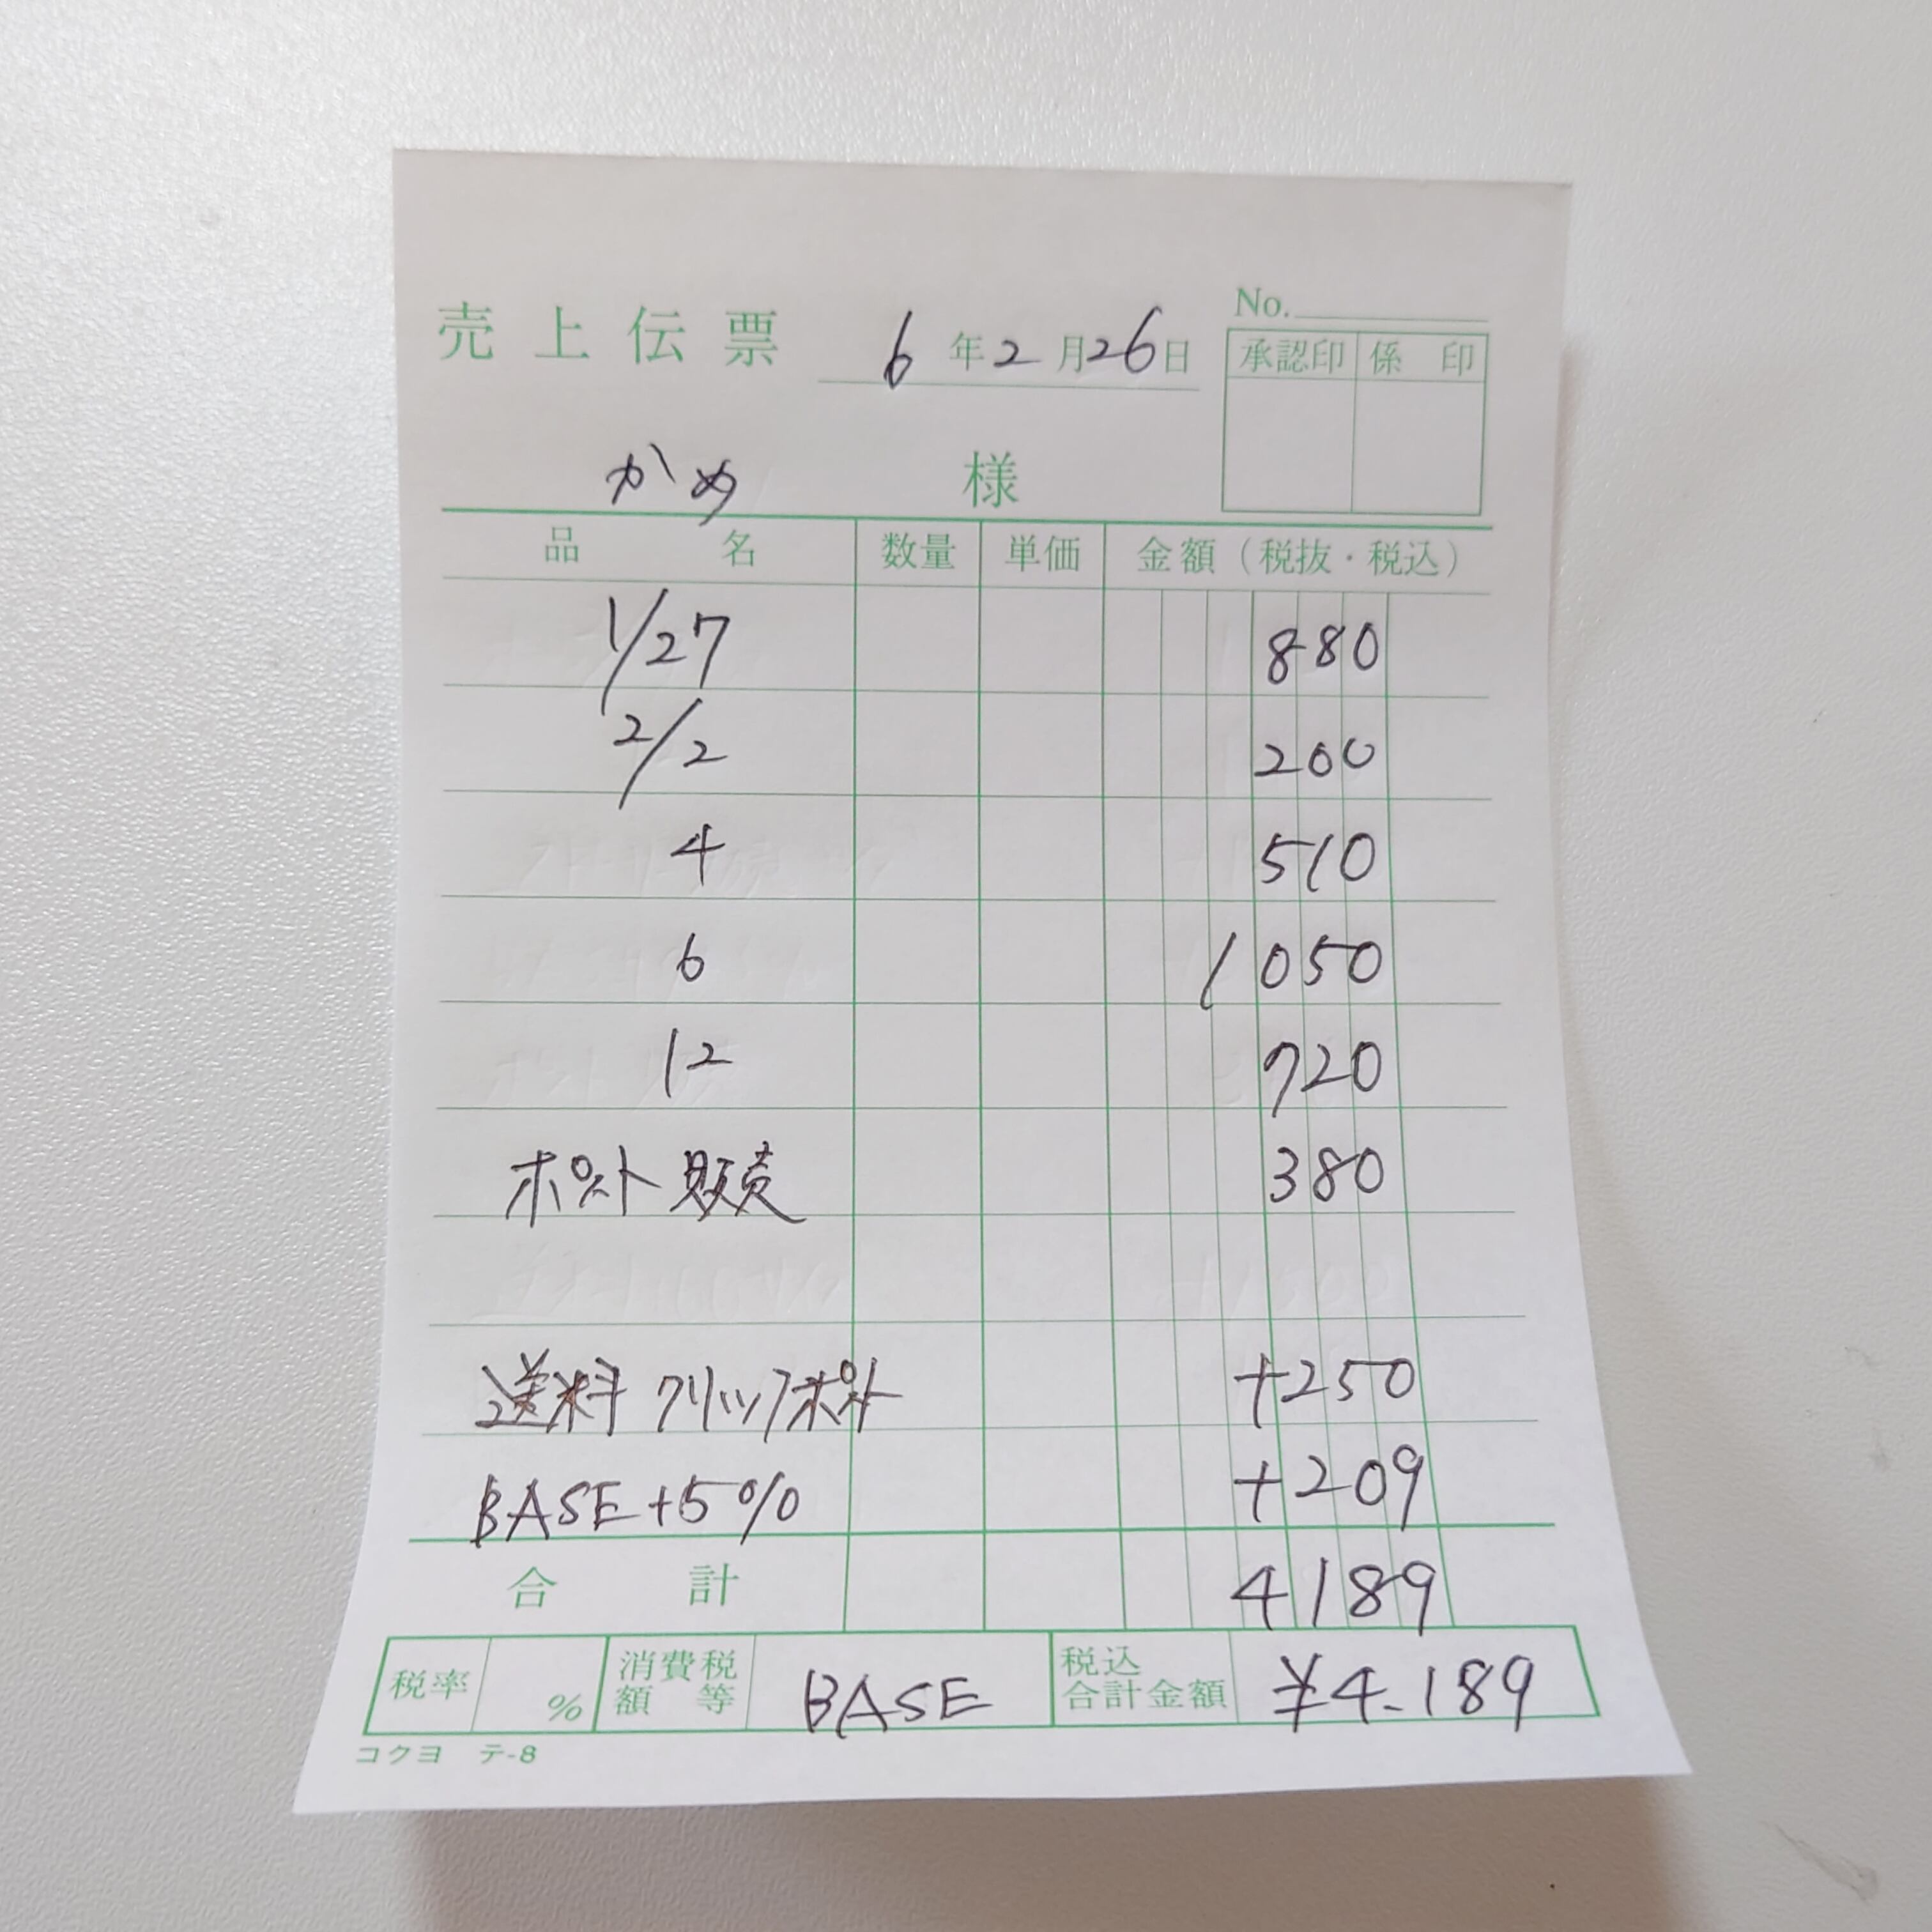 No.
売上伝票 6年2月26日
承認印 係印
かめ 様
品名 数量 単価 金額（税抜・税込）
1/27 880
2/2 200
4 510
6 1050
12 720
ポスト販売 380
送料 クリックポスト +250
BASE+5% +209
合計 4189
税率 % 消費税額等 BASE 税込合計金額 ¥4.189
コクヨ テ-8